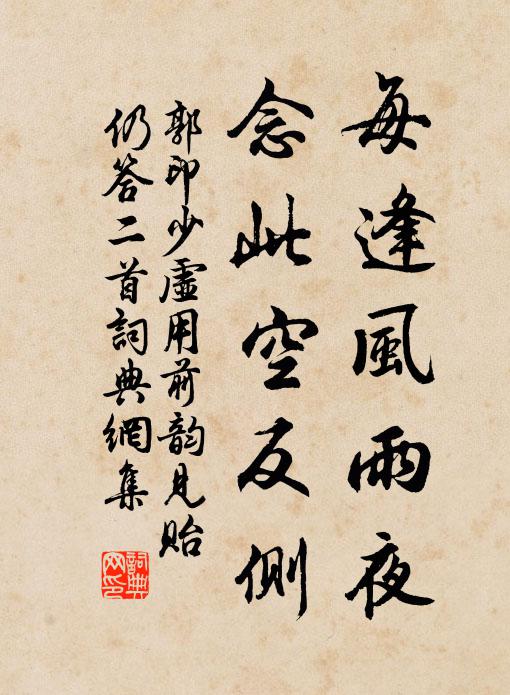 每逢風雨夜
念此空反側
郭印少虛用前韵見貽
仍答二首詞典網集
詞典
网印